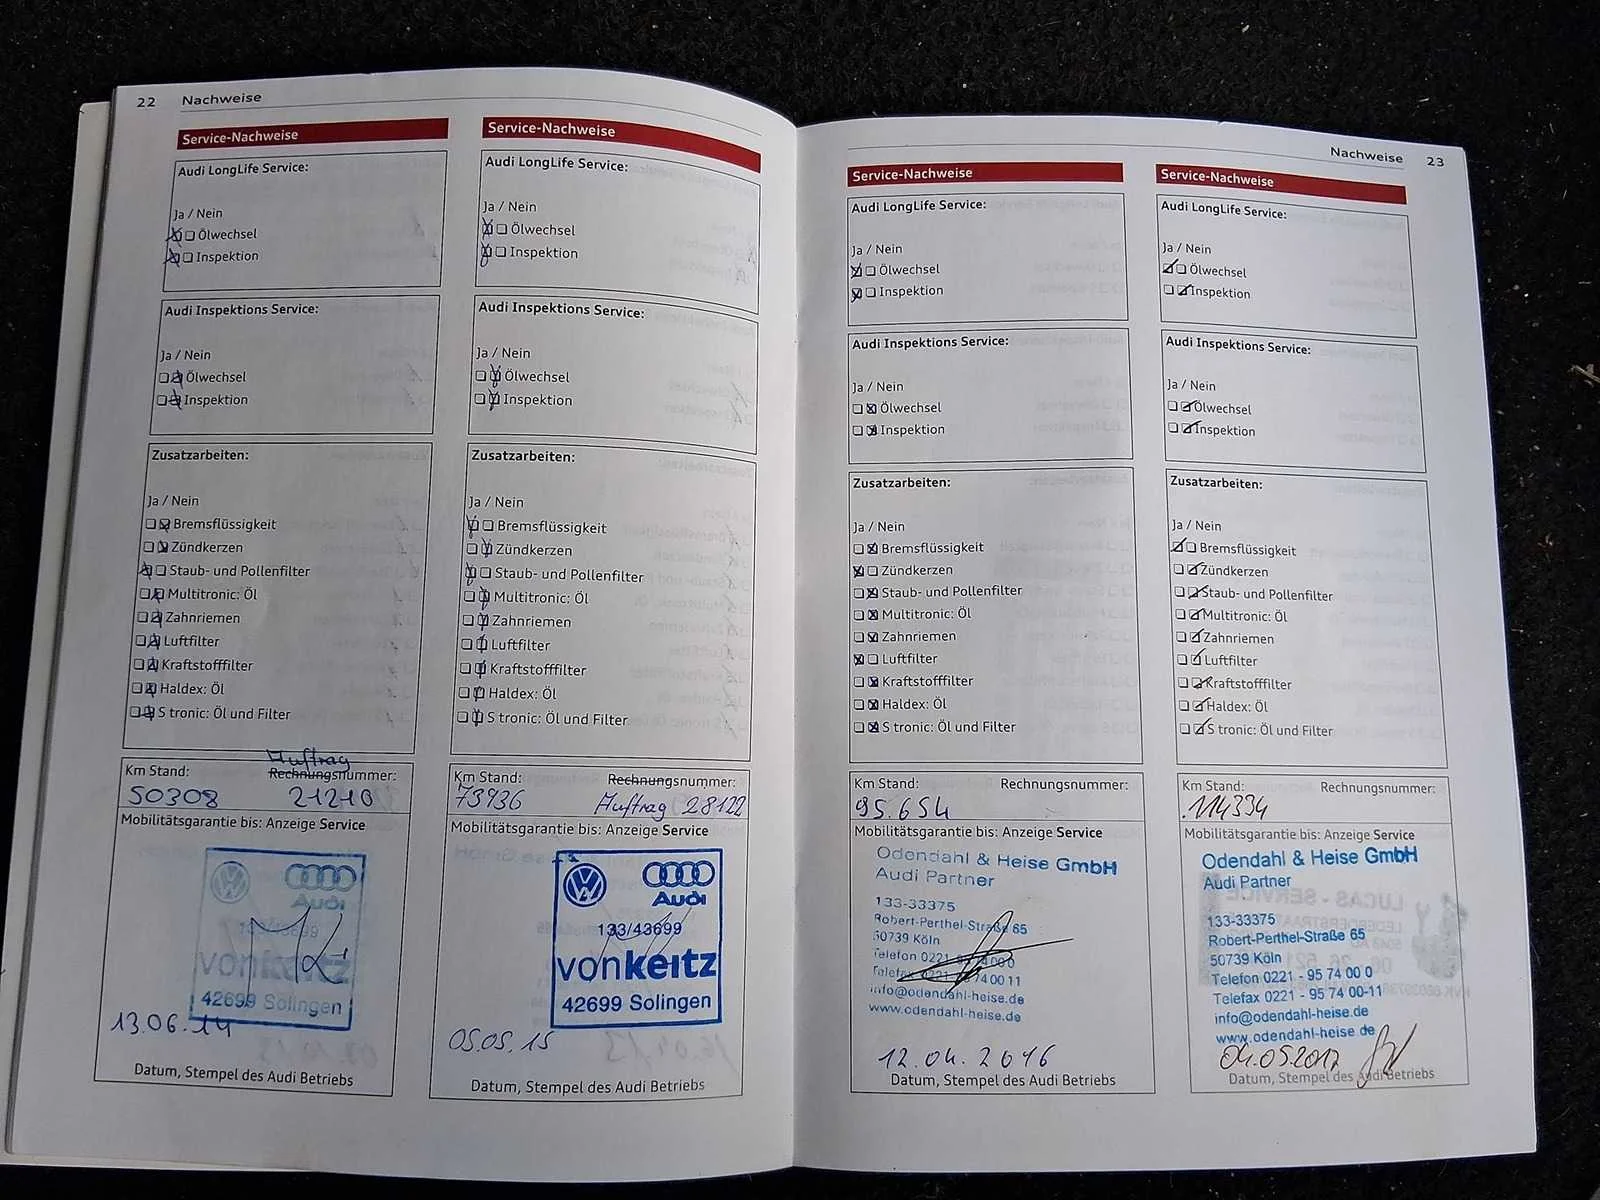 22 Nachweise
Service-Nachweise
Audi LongLife Service:
Ja / Nein
Ölwechsel
Inspektion
Audi Inspektions Service:
Ja / Nein
Ölwechsel
Inspektion
Zusatzarbeiten:
Ja / Nein
Bremsflüssigkeit
Zündkerzen
Staub- und Pollenfilter
Multitronic: Öl
Zahnriemen
Luftfilter
Kraftstofffilter
Haldex: Öl
S tronic: Öl und Filter
Auftrag
Km Stand: Rechnungsnummer:
50308 21210
Mobilitätsgarantie bis: Anzeige Service
Audi
133/43699
vonkeitz
42699 Solingen
13.06.14
Datum, Stempel des Audi Betriebs
Service-Nachweise
Audi LongLife Service:
Ja / Nein
Ölwechsel
Inspektion
Audi Inspektions Service:
Ja / Nein
Ölwechsel
Inspektion
Zusatzarbeiten:
Ja / Nein
Bremsflüssigkeit
Zündkerzen
Staub- und Pollenfilter
Multitronic: Öl
Zahnriemen
Luftfilter
Kraftstofffilter
Haldex: Öl
S tronic: Öl und Filter
Km Stand: Rechnungsnummer:
73936 Auftrag 28122
Mobilitätsgarantie bis: Anzeige Service
Audi
133/43699
vonkeitz
42699 Solingen
05.05.15
Datum, Stempel des Audi Betriebs
Nachweise 23
Service-Nachweise
Audi LongLife Service:
Ja / Nein
Ölwechsel
Inspektion
Audi Inspektions Service:
Ja / Nein
Ölwechsel
Inspektion
Zusatzarbeiten:
Ja / Nein
Bremsflüssigkeit
Zündkerzen
Staub- und Pollenfilter
Multitronic: Öl
Zahnriemen
Luftfilter
Kraftstofffilter
Haldex: Öl
S tronic: Öl und Filter
Km Stand: Rechnungsnummer:
95.654
Mobilitätsgarantie bis: Anzeige Service
Odendahl & Heise GmbH
Audi Partner
133-33375
Robert-Perthel-Straße 65
50739 Köln
Telefon 0221 - 95 74 00 0
Telefax 0221 - 95 74 00 11
info@odendahl-heise.de
www.odendahl-heise.de
12.04.2016
Datum, Stempel des Audi Betriebs
Service-Nachweise
Audi LongLife Service:
Ja / Nein
Ölwechsel
Inspektion
Audi Inspektions Service:
Ja / Nein
Ölwechsel
Inspektion
Zusatzarbeiten:
Ja / Nein
Bremsflüssigkeit
Zündkerzen
Staub- und Pollenfilter
Multitronic: Öl
Zahnriemen
Luftfilter
Kraftstofffilter
Haldex: Öl
S tronic: Öl und Filter
Km Stand: Rechnungsnummer:
114334
Mobilitätsgarantie bis: Anzeige Service
Odendahl & Heise GmbH
Audi Partner
133-33375
Robert-Perthel-Straße 65
50739 Köln
Telefon 0221 - 95 74 00 0
Telefax 0221 - 95 74 00-11
info@odendahl-heise.de
www.odendahl-heise.de
04.05.2017
Datum, Stempel des Audi Betriebs